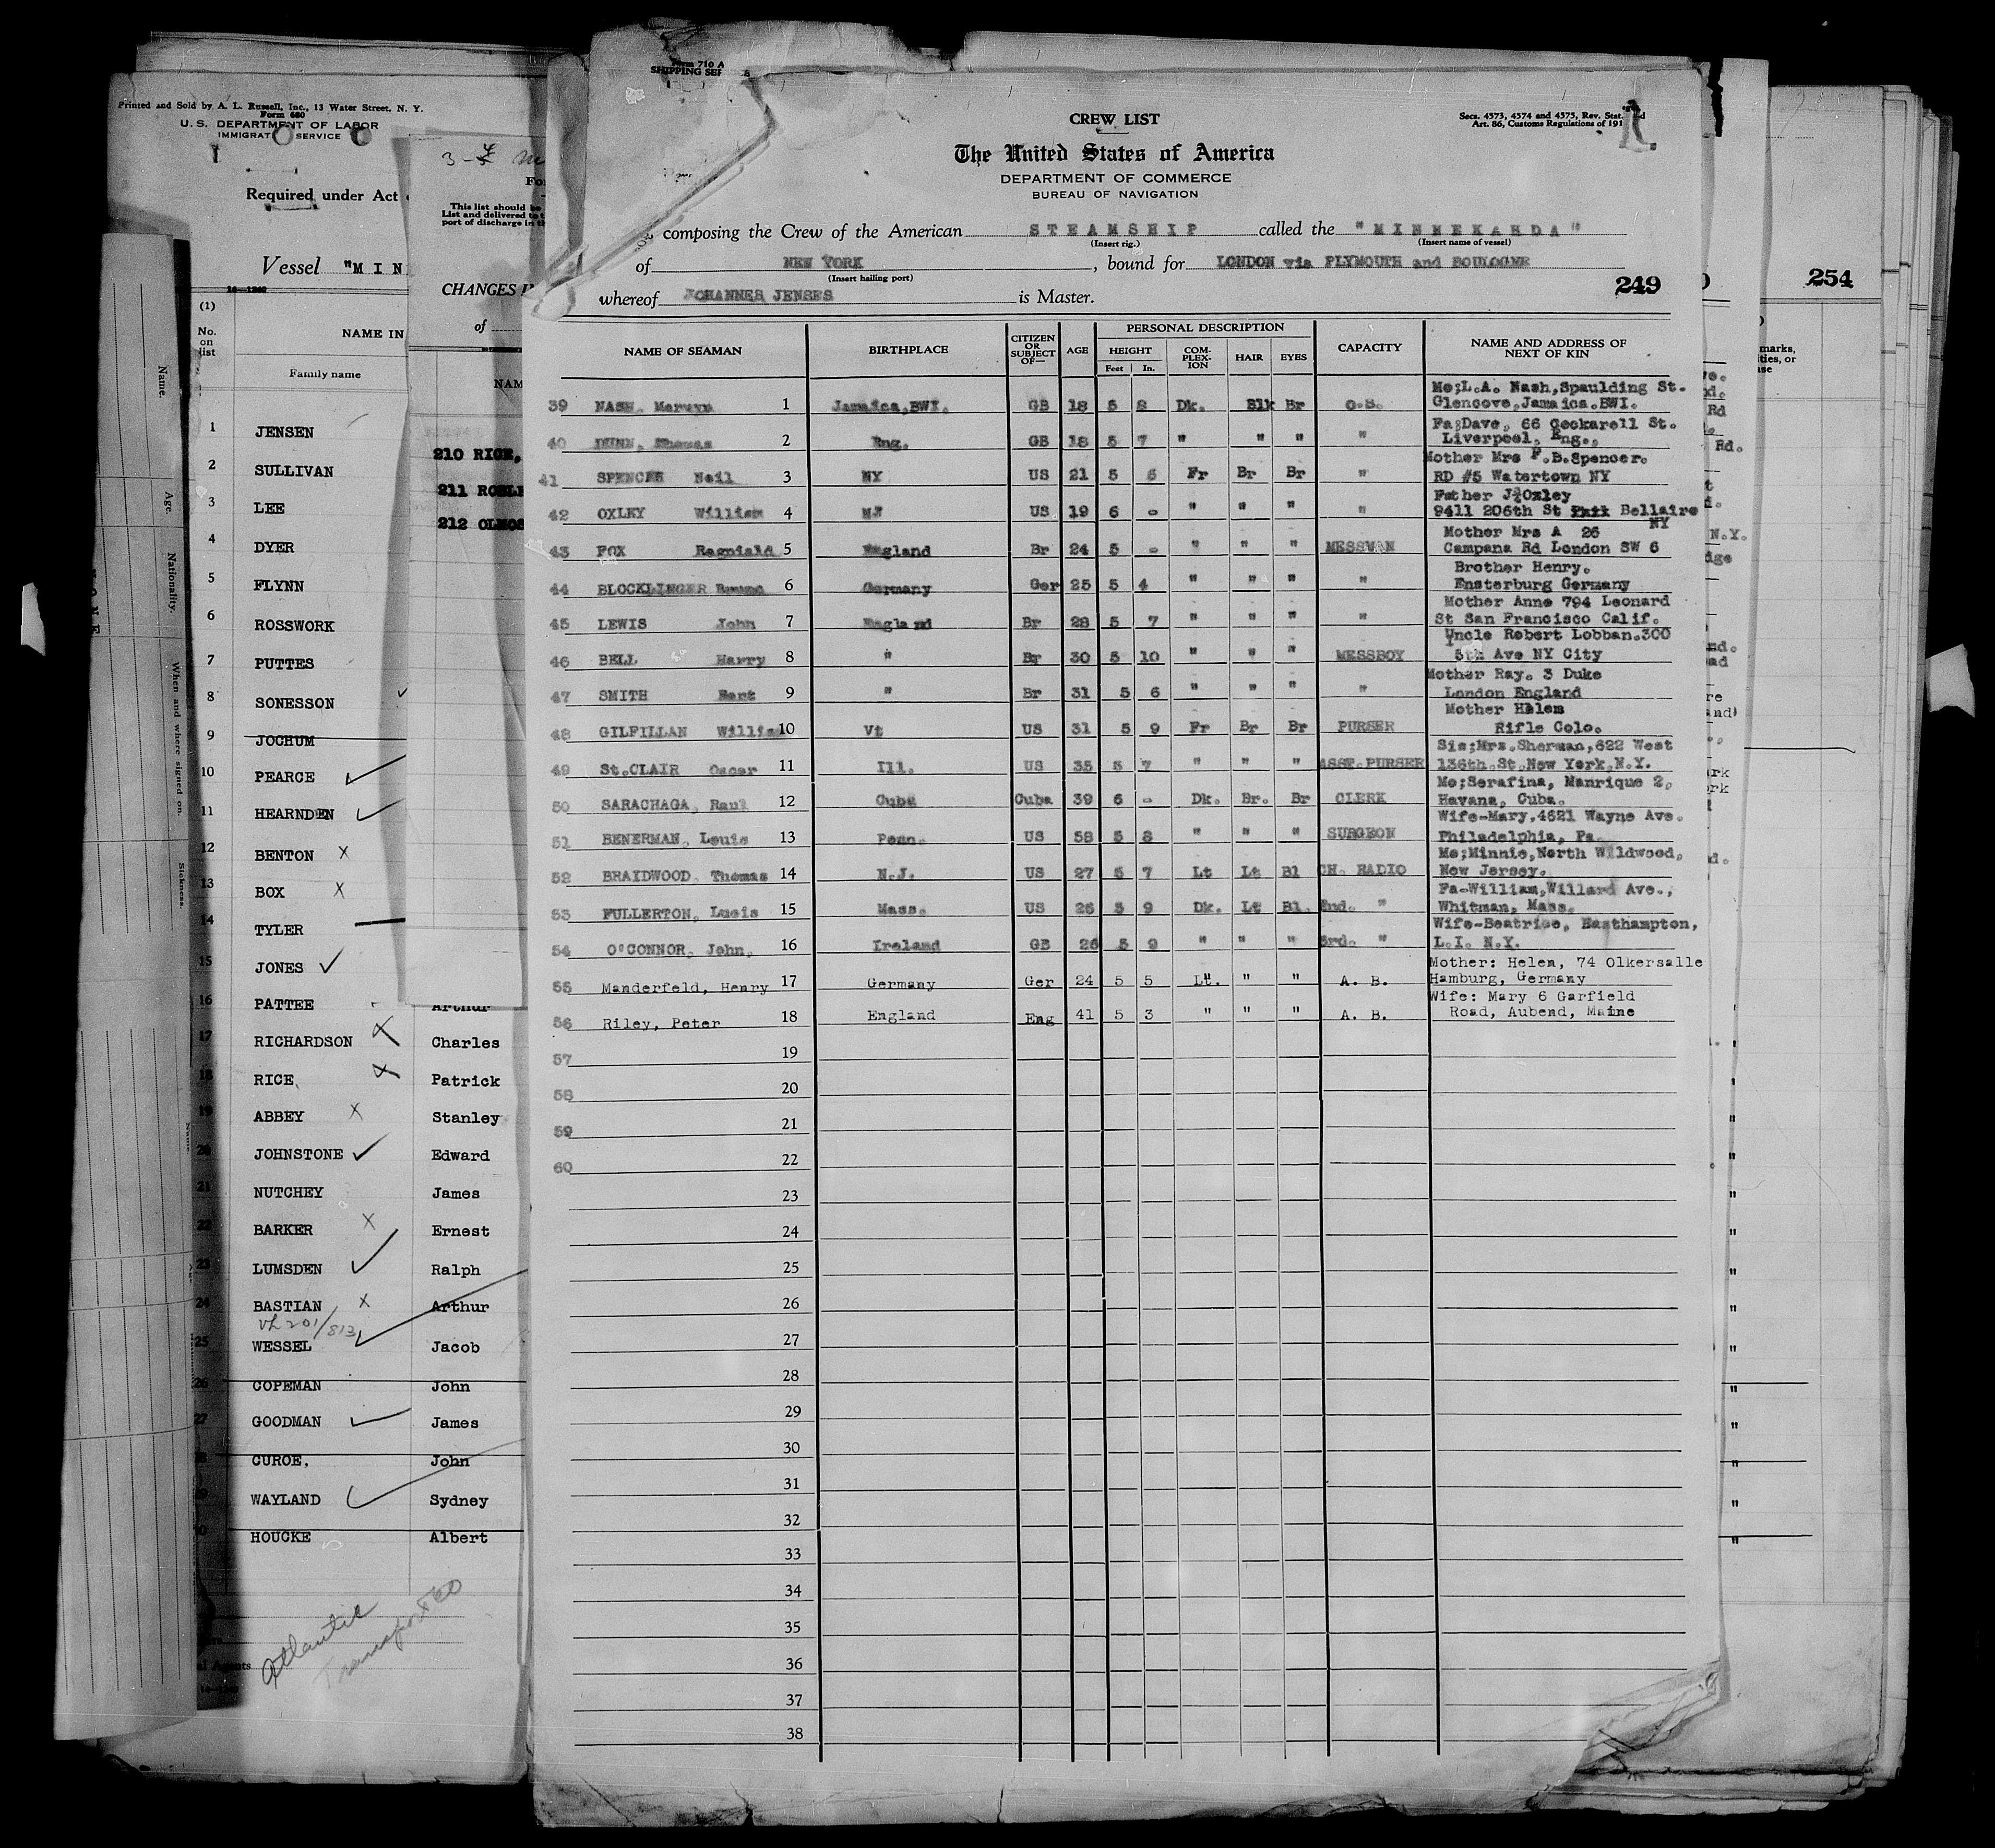 Printed and Sold by A. L. Russell, Inc., 13 Water Street, N. Y.
Form 680
U. S. DEPARTMENT OF LABOR
IMMIGRAT SERVICE
Required under Act
Vessel "MIN
(1)
No. on list
NAME IN
Family name
1 JENSEN
2 SULLIVAN
3 LEE
4 DYER
5 FLYNN
6 ROSSWORK
7 PUTTES
8 SONESSON
9 JOCHUM
10 PEARCE
11 HEARNDEN
12 BENTON X
13 BOX X
14 TYLER
15 JONES
16 PATTEE Arthur
17 RICHARDSON X Charles
18 RICE, X Patrick
19 ABBEY X Stanley
20 JOHNSTONE Edward
21 NUTCHEY James
22 BARKER X Ernest
23 LUMSDEN Ralph
24 BASTIAN X Arthur
25 WESSEL Jacob
26 COPEMAN John
27 GOODMAN James
28 CUROE, John
29 WAYLAND Sydney
30 HOUCKE Albert
Atlantic
Transport Co
Name.
Age.
Nationality.
When and where signed on.
Sickness.
This list should be
List and delivered to t
port of discharge in th
CHANGES I
of
NAM
210 RICE,
211
212 OLMOS
Form 710 A
SHIPPING SE
CREW LIST
Secs. 4573, 4574 and 4575, Rev. Stat.
Art. 86, Customs Regulations of 191
The United States of America
DEPARTMENT OF COMMERCE
BUREAU OF NAVIGATION
composing the Crew of the American STEAMSHIP called the "MINNEKAHDA"
(Insert rig.) (Insert name of vessel)
of NEW YORK, bound for LONDON via PLYMOUTH and BOULOGNE
(Insert hailing port)
whereof JOHANNES JENSES is Master.
249
254
NAME OF SEAMAN BIRTHPLACE CITIZEN OR SUBJECT OF— AGE PERSONAL DESCRIPTION CAPACITY NAME AND ADDRESS OF NEXT OF KIN
HEIGHT COM-PLEX-ION HAIR EYES
Feet In.
Mo;L.A. Nash,Spaulding St.
39 NASH, Mervyn 1 Jamaica,BWI. GB 18 5 8 Dk. Blk Br O.S. Glencove,Jamaica.BWI.
Fa;Dave, 66 Cockarell St.
40 DUNN, Thomas 2 Eng. GB 18 5 7 " " " " Liverpool, Eng.,
Mother Mrs F.B.Spencer.
41 SPENCER Neil 3 NY US 21 5 6 Fr Br Br " RD #5 Watertown NY
Father J Oxley
42 OXLEY William 4 NJ US 19 6 - " " " " 9411 206th St Bellaire NY
Mother Mrs A 26
43 FOX Reginald 5 England Br 24 5 - " " " MESSMAN Campana Rd London SW 6
Brother Henry.
44 BLOCKLINGER Bruno 6 Germany Ger 25 5 4 " " " " Ensterburg Germany
Mother Anne 794 Leonard
45 LEWIS John 7 England Br 28 5 7 " " " " St San Francisco Calif.
Uncle Robert Lobban.300
46 BELL Harry 8 " Br 30 5 10 " " " MESSBOY 5th Ave NY City
Mother Ray. 3 Duke
47 SMITH Bert 9 " Br 31 5 6 " " " " London England
Mother Helen
48 GILFILLAN William 10 Vt US 31 5 9 Fr Br Br PURSER Rifle Colo.
Sis;Mrs.Sherman,622 West
49 St.CLAIR Oscar 11 Ill. US 35 5 7 " " " ASST.PURSER 136th.St.New York,N.Y.
Mo;Serafina, Manrique 2,
50 SARACHAGA, Raul 12 Cuba Cuba 39 6 - Dk. Br. Br CLERK Havana, Cuba.
Wife-Mary,4621 Wayne Ave.
51 BENERMAN, Louis 13 Penn. US 58 5 8 " " " SURGEON Philadelphia, Pa.
Mo;Minnie,North Wildwood,
52 BRAIDWOOD, Thomas 14 N.J. US 27 5 7 Lt Lt Bl CH. RADIO New Jersey.
Fa-William,Willard Ave.,
53 FULLERTON, Lucis 15 Mass. US 26 5 9 Dk. Lt Bl. 2nd. " Whitman, Mass.
Wife-Beatrice, Easthampton,
54 O'CONNOR, John, 16 Ireland GB 26 5 9 " " " 3rd. " L.I. N.Y.
Mother: Helen, 74 Olkersalle
55 Manderfeld, Henry 17 Germany Ger 24 5 5 Lt. " " A. B. Hamburg, Germany
Wife: Mary 6 Garfield
56 Riley, Peter 18 England Eng 41 5 3 " " " A. B. Road, Aubend, Maine
57 19
58 20
59 21
60 22
23
24
25
26
27
28
29
30
31
32
33
34
35
36
37
38